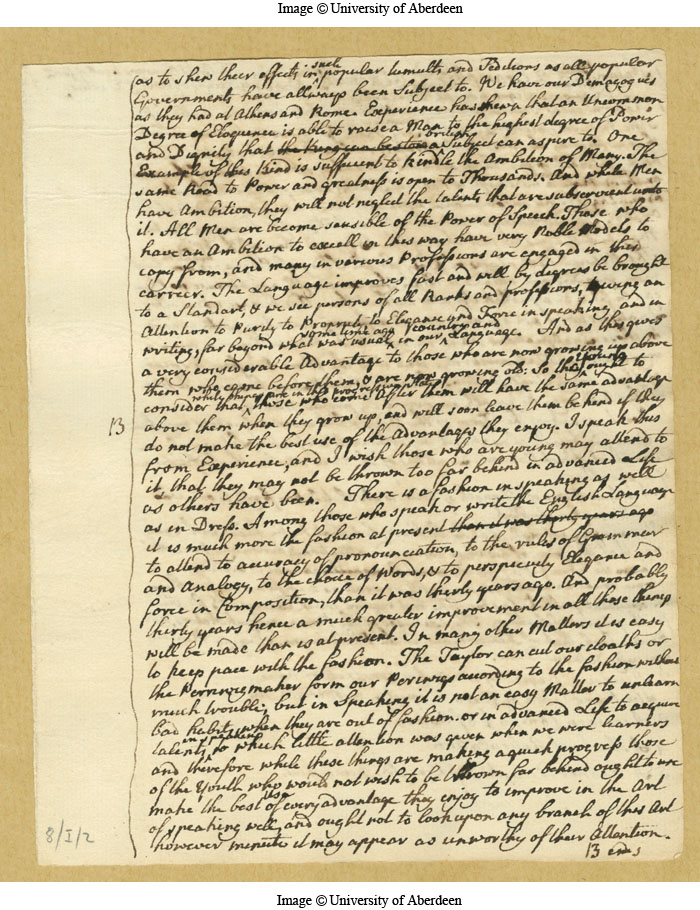 Image © University of Aberdeen
as to shew their effects in such popular tumults and Seditions as all popular
Governments have allways been Subject to. We have our Demagogues
as they had at Athens and Rome. Experience has shewn that an Uncommon
Degree of Eloquence is able to raise a Man to the highest degree of Power
and Dignity that a British Subject can aspire to. One
Example of this kind is sufficient to kindle the Ambition of Many. The
same Road to Power and greatness is open to Thousands. And while Men
have Ambition, they will not neglect the talents that are subservient unto
it. All Men are become sensible of the Power of Speech. Those who
have an Ambition to excell in this way have very Noble Models to
copy from, and many in various Professions are engaged in this
carrier. The Language improves fast and will by degrees be brought
to a Standart, & we see persons of all Ranks and professions, giving an
Attention to Purity to Propriety to Elegance and Force in speaking and in
writing, far beyond what was usual some time ago in our country and Language. And as this gives
a very considerable Advantage to those who are now growing up above
them who came before them, & are now growing old: So the young ought to
consider that while they are in this progressive State those who come after them will have the same advantage
above them when they grow up, and will soon leave them behind if they
13
do not make the best use of the Advantages they enjoy. I speak this
from Experience, and I wish those who are young may attend to
it that they may not be thrown too far behind in advanced Life
as others have been. There is a fashion in speaking as well
as in Dress. Among those who speak or write the English Language
it is much more the fashion at present than it was thirty years ago
to attend to accuracy of pronounciation, to the rules of Grammar
and Analogy, to the choice of Words, & to perspicuity Elegance and
force in Composition, than it was thirty years ago. And probably
thirty years hence a much greater improvement in all these things
will be made than is at present. In many other Matters it is easy
to keep pace with the fashion. The Taylor can cut our cloaths or
the Perriwigmaker form our Periwigs according to the fashion without
much trouble; but in Speaking it is not an easy Matter to unlearn
bad habits when they are out of fashion. or in advanced Life to acquire
talents in speech to which little attention was given when we were learners
and therefore while these things are making a quick progress those
of the Youth who would not wish to be thrown far behind ought to
make the best use of every advantage they enjoy to improve in the Art
of speaking well, and ought not to look upon any branch of this Art
however minute it may appear as unworthy of their Attention.
8/I/2
13 ends
Image © University of Aberdeen